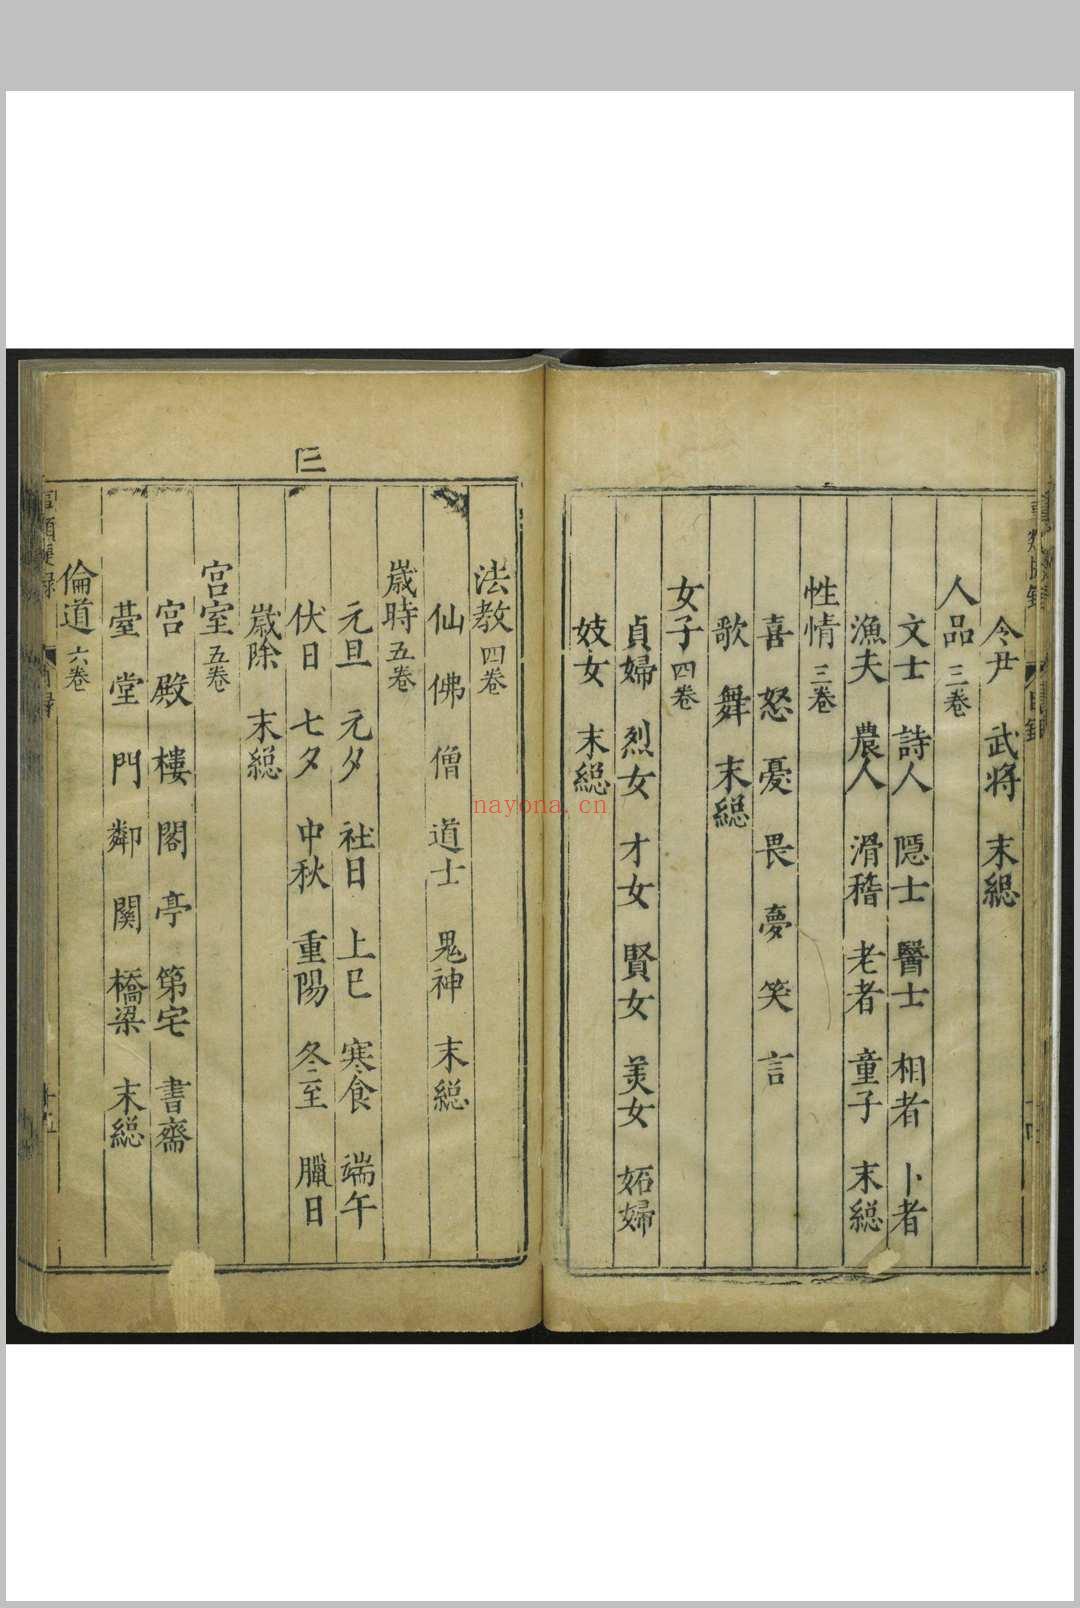 令尹 武将 末緫
人品 三卷
文士 詩人 隠士 醫士 相者 卜者
漁夫 農人 滑稽 老者 童子 末緫
性情 三卷
喜 怒 憂 畏 夢 笑 言
歌 舞 末緫
女子 四卷
貞婦 烈女 才女 賢女 美女 妬婦
妓女 末緫
法教 四卷
仙 佛 僧 道士 鬼神 末緫
歳時 五卷
元旦 元夕 社日 上巳 寒食 端午
伏日 七夕 中秋 重陽 冬至 臘日
歳除 末緫
宫室 五卷
宫 殿 樓 閣 亭 第宅 書齋
臺 堂 門 鄰 関 橋梁 末緫
倫道 六卷
nayona.cn